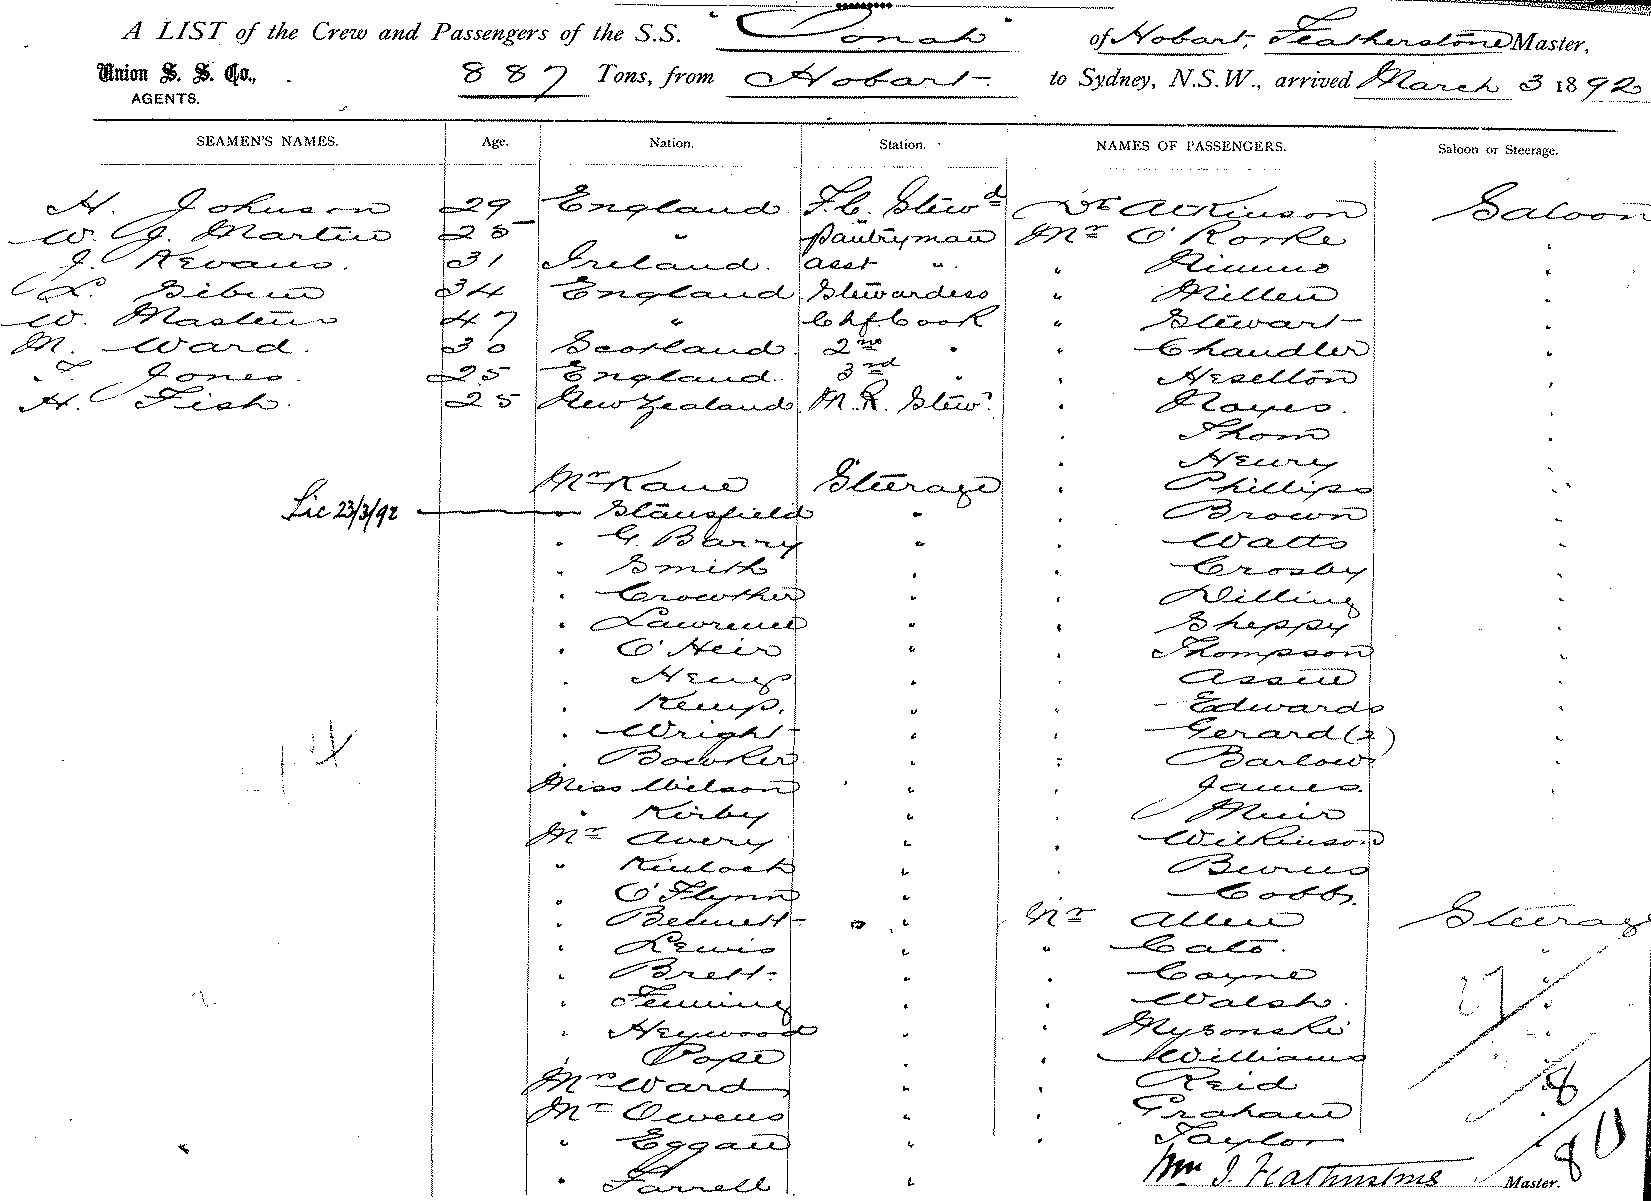 A LIST of the Crew and Passengers of the S.S. "Oonah" of Hobart, Featherstone Master,
Union S. S. Co., 887 Tons, from Hobart to Sydney, N.S.W., arrived March 3 1892
AGENTS.
SEAMEN'S NAMES. Age. Nation. Station. NAMES OF PASSENGERS. Saloon or Steerage.
H. Johnson 29 England F.C. Stewd Dr Atkinson Saloon
W. J. Martin 25 " Pantryman Mr O'Rorke "
J. Kevans. 31 Ireland. asst " " Nimmo "
L. Gibson 34 England Stewardess " Millen "
W. Masters 47 " Chf. Cook " Stewart "
M. Ward. 30 Scotland 2nd " " Chandler "
T Jones. 25 England. 3rd " " Heselton "
H. Fish. 25 New Zealand M.R. Stewd. " Noyes. "
" Thom "
" Henry "
Mr Kane Steerage " Phillips "
Lic 23/3/92 " Stansfield " " Brown "
" G. Barry " " Watts "
" Smith " " Crosby "
" Crowther " " Dilling "
" Lawrence " " Sheppy "
" O'Heir " " Thompson "
" Henry " "
" Kemp. " " Edwards "
" Wright " " Gerard (2) "
" Bowker " " Barlow "
Miss Wilson " " James. "
" Kirby " " Muir "
Mr Avery " " Wilkinson "
" Kinloch " " Burns
" O'Flynn " Cobb.
" Bennett " Mr Allen Steerage
" Lewis " " Cato. "
" Brett " " Coyne "
" Fenning " " Walsh. "
" Heywood " " Mysonski "
" Pope " " Williams "
Mrs Ward " " Reid 8
Mr Owens " " Graham "
" Eggan " " Taylor 80
" Farrell " Wm J. Featherstone Master.